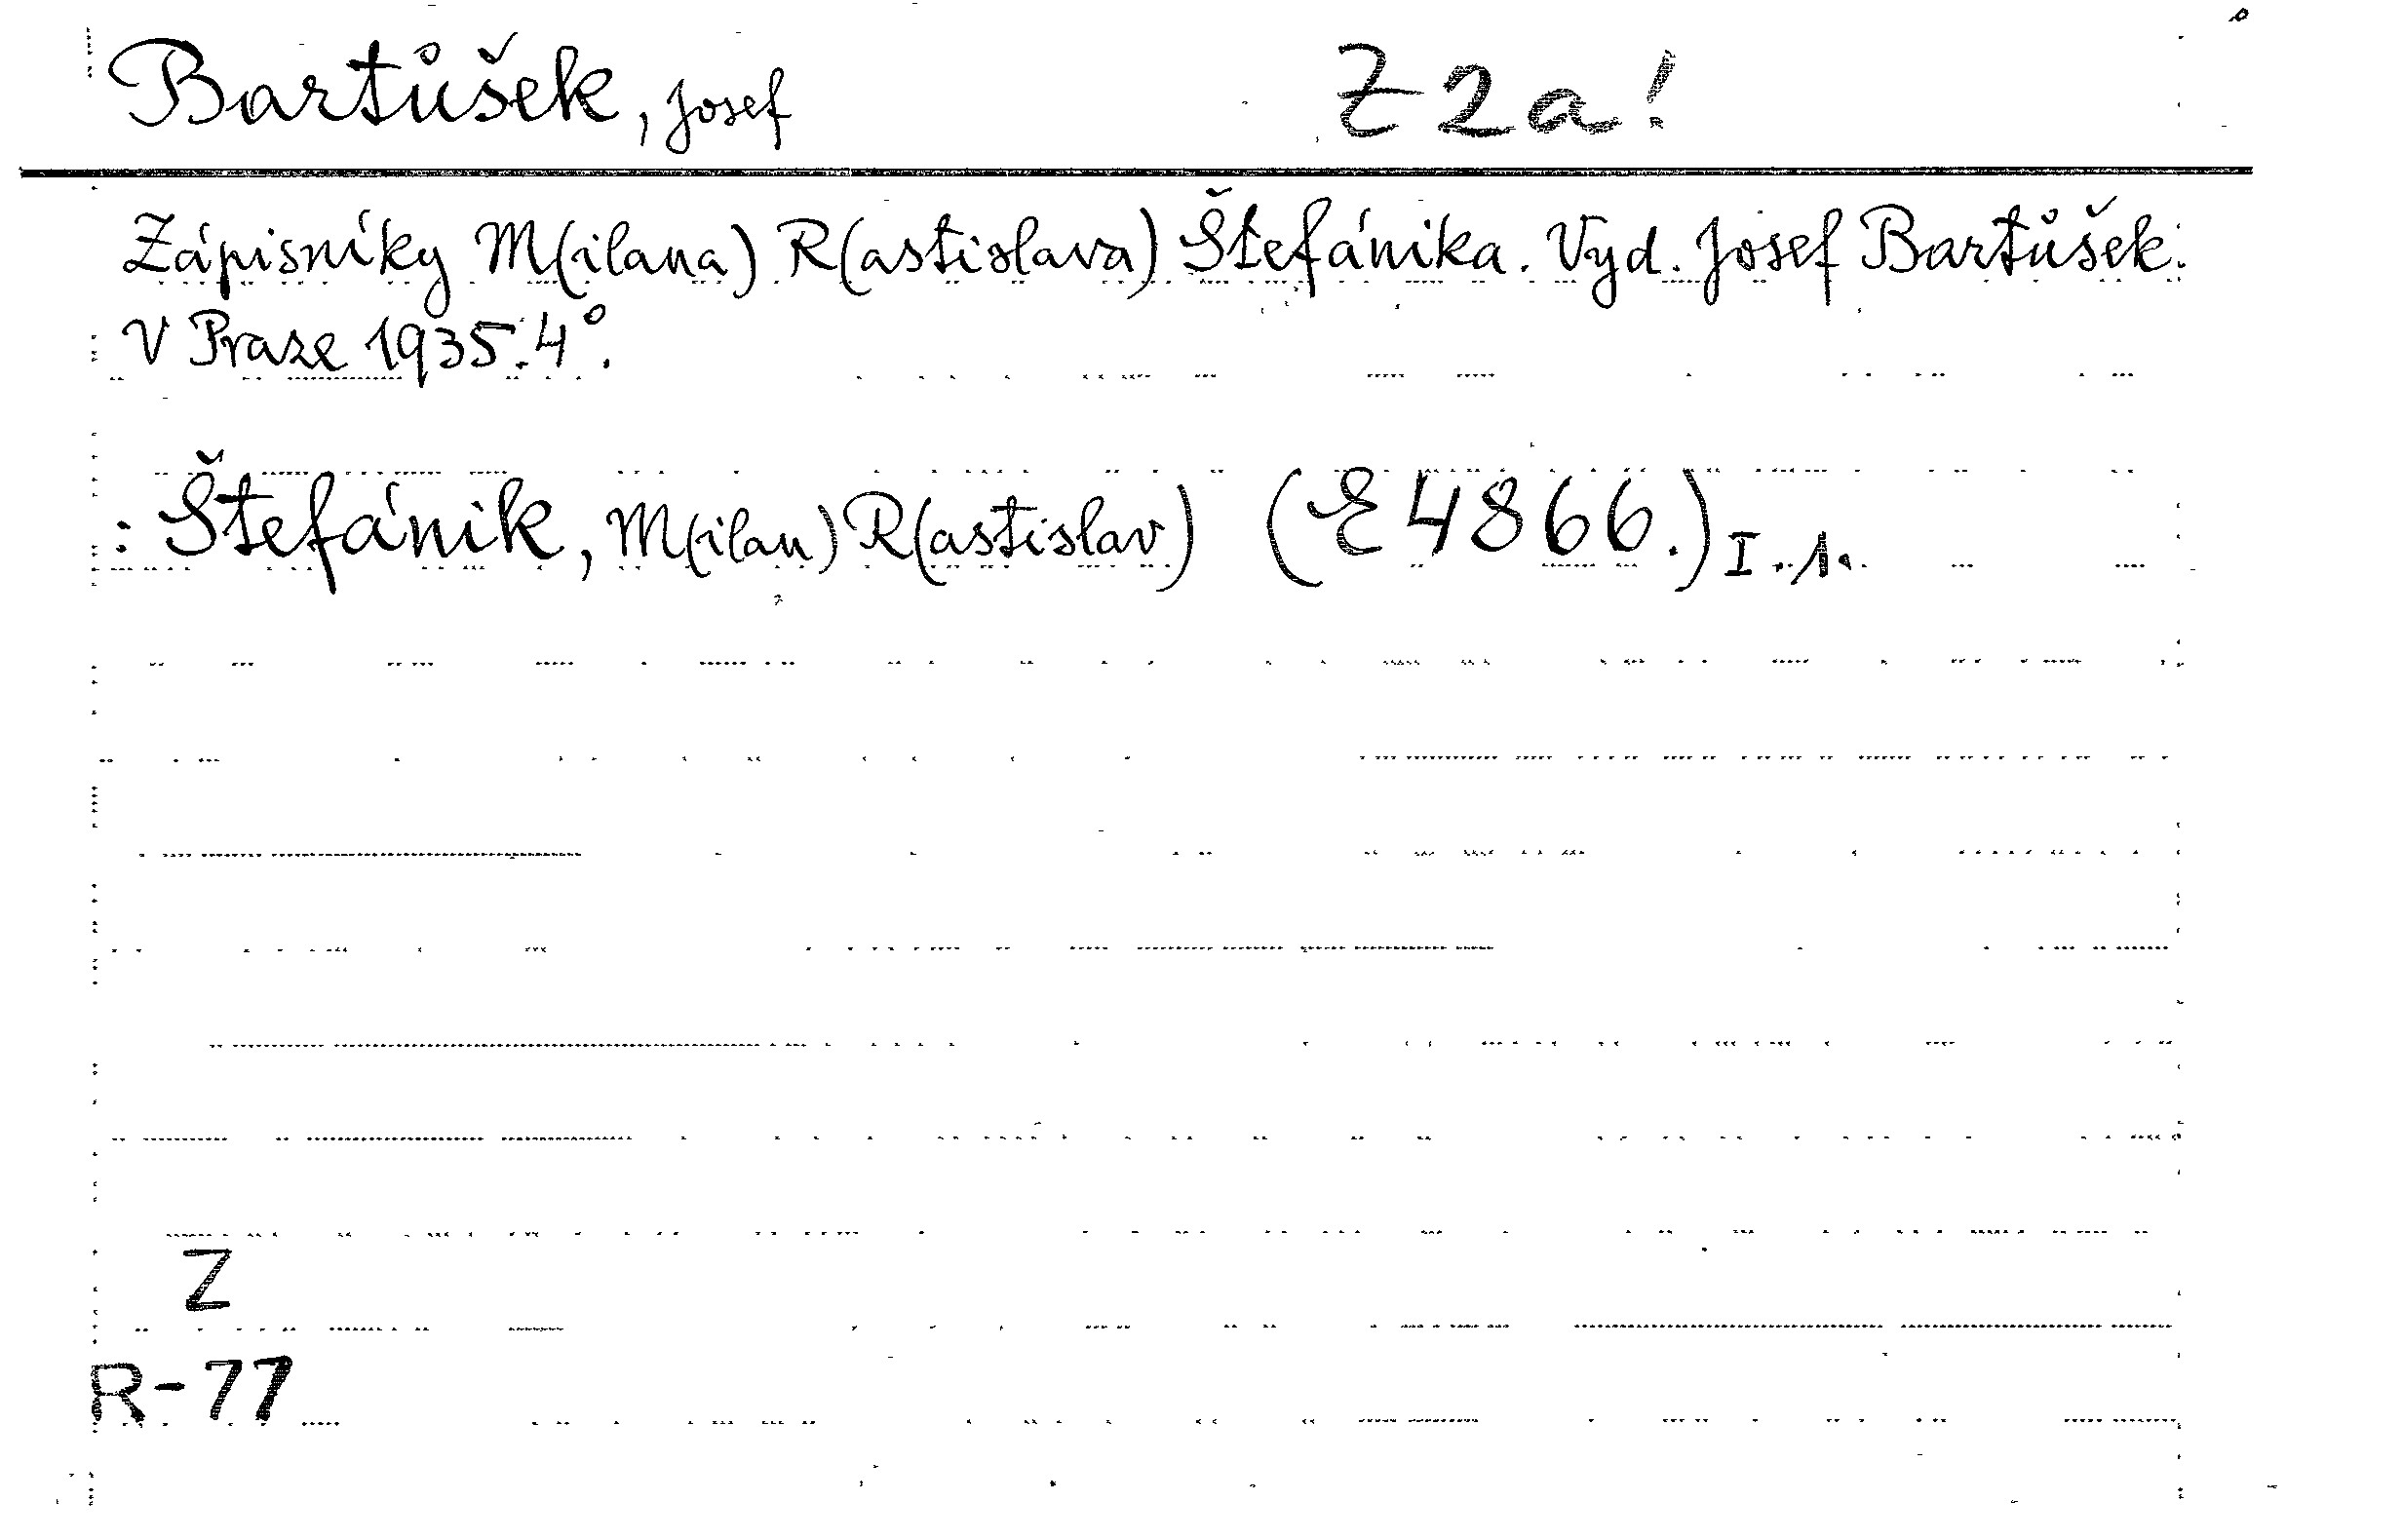 Bartůšek, Josef Z2a!
Zápisníky M(ilana) R(astislava) Štefánika. Vyd. Josef Bartůšek.
V Praze 1935. 4°.
: Štefánik, M(ilan) R(astislav) (E 4866.) I. 1.
Z
R-77